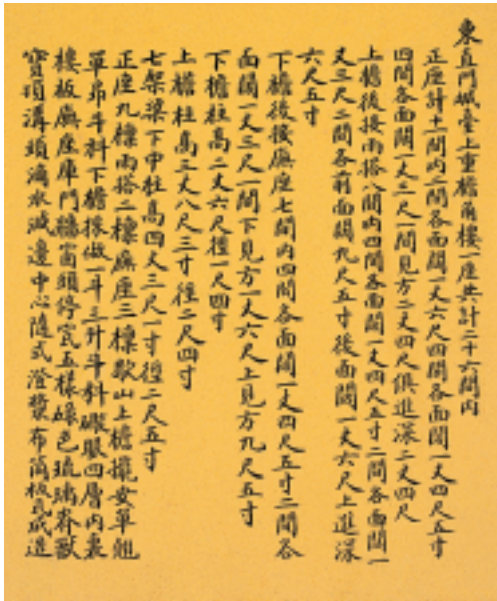 東直門城臺上重檐角樓一座共計二十六間內
正座計十一間內二間各面闊一丈六尺四間各面闊一丈四尺五寸
四間各面闊一丈三尺一間見方二丈四尺俱進深二丈四尺
上檐後接雨搭八間內四間各面闊一丈四尺五寸二間各面闊一
丈三尺二間各前面闊九尺五寸後面闊一丈六尺上進深
六尺五寸
下檐後接廡座七間內四間各面闊一丈四尺五寸二間各
面闊一丈三尺一間下見方一丈六尺上見方九尺五寸
下檐柱高二丈六尺徑一尺四寸
上檐柱高三丈八尺三寸徑二尺四寸
七架梁下中柱高四丈三尺一寸徑二尺五寸
正座九檁雨搭二檁廡座三檁歇山上檐擺安單翹
單昂斗科下檐檐做一斗三升斗科 四層內裏
樓板廡座庫門牆窗頭停瓦五樣綠色琉璃脊獸
寶頂溝頭滴水減邊中心隨式澄漿布筒板瓦成造